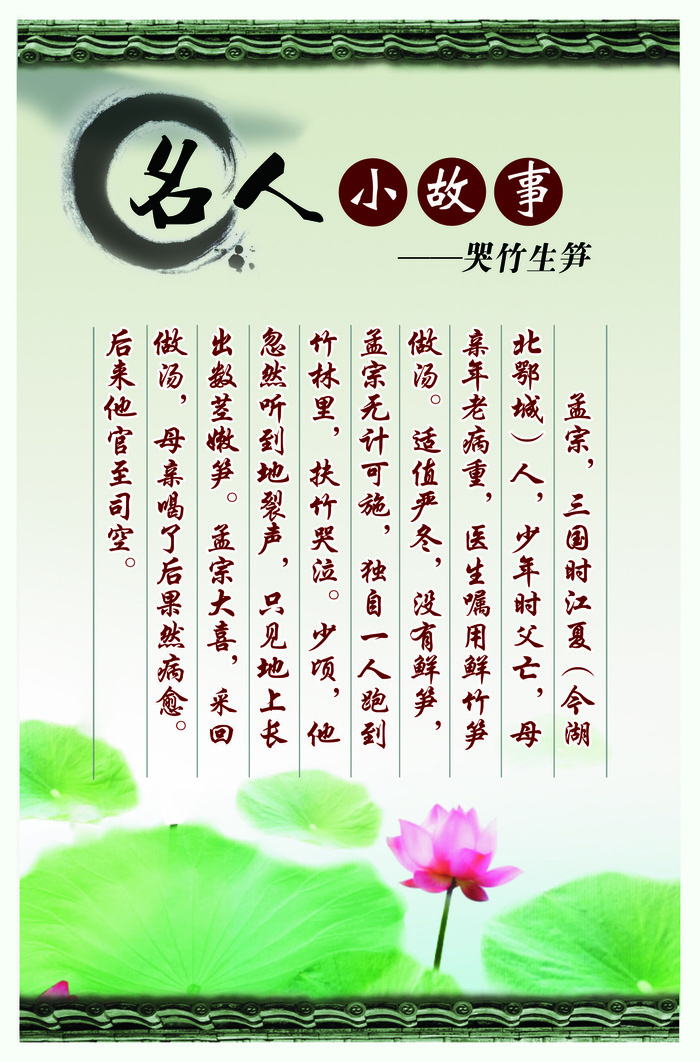 名人小故事
——哭竹生笋
孟宗，三国时江夏（今湖
北鄂城）人，少年时父亡，母
亲年老病重，医生嘱用鲜竹笋
做汤。适值严冬，没有鲜笋，
孟宗无计可施，独自一人跑到
竹林里，扶竹哭泣。少顷，他
忽然听到地裂声，只见地上长
出数茎嫩笋。孟宗大喜，采回
做汤，母亲喝了后果然病愈。
后来他官至司空。